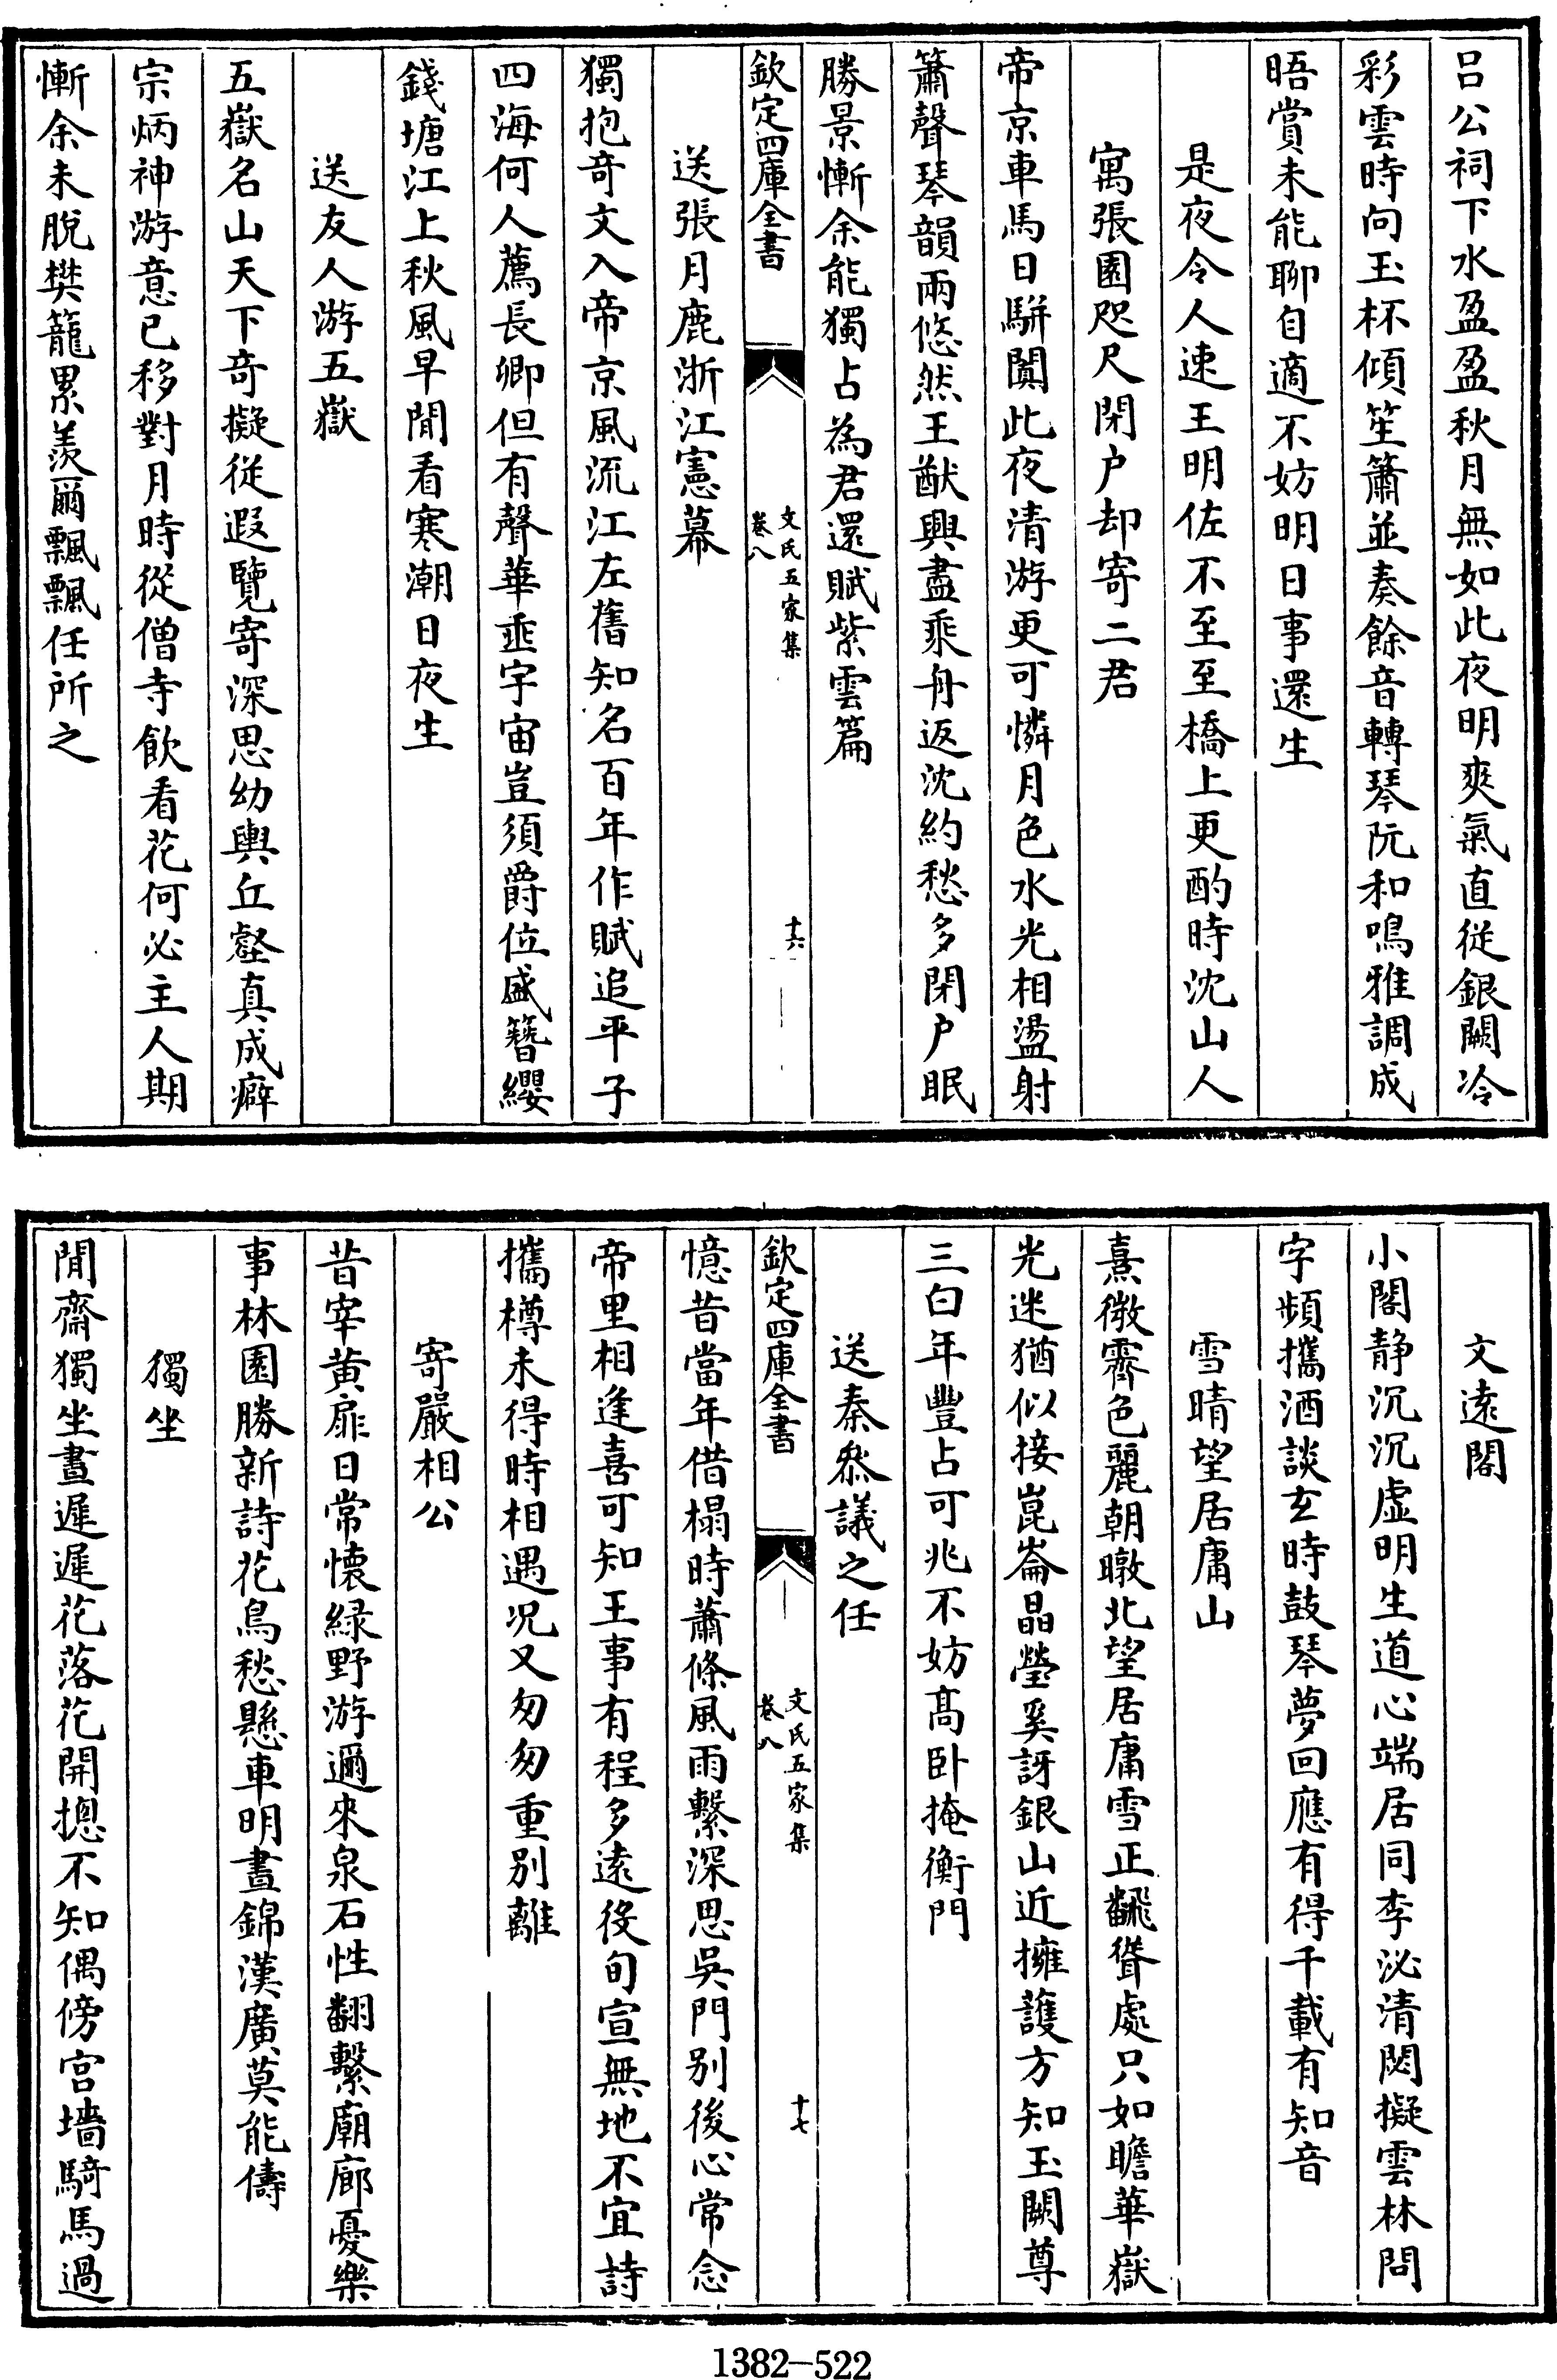 呂公祠下水盈盈秋月無如此夜明爽氣直從銀闕冷
彩雲時向玉杯傾笙簫並奏餘音轉琴阮和鳴雅調成
晤賞未能聊自適不妨明日事還生
是夜令人速王明佐不至至橋上更酌時沈山人
寓張園咫尺閉户却寄二君
帝京車馬日駢闐此夜清游更可憐月色水光相盪射
簫聲琴韻兩悠然王猷興盡乘舟返沈約愁多閉户眠
勝景慚余能獨占為君還賦紫雲篇
欽定四庫全書
文氏五家集
卷八
十六
送張月鹿浙江憲幕
獨抱奇文入帝京風流江左舊知名百年作賦追平子
四海何人薦長卿但有聲華垂宇宙豈須爵位盛簪纓
錢塘江上秋風早閒看寒潮日夜生
送友人游五嶽
五嶽名山天下奇擬從遐覽寄深思幼輿丘壑真成癖
宗炳神游意已移對月時從僧寺飲看花何必主人期
慚余未脫樊籠累羨爾飄飄任所之
文遠閣
小閣静沉沉虛明生道心端居同李泌清閟擬雲林問
字頻攜酒談玄時鼓琴夢回應有得千載有知音
雪晴望居庸山
熹微霽色麗朝暾北望居庸雪正飜聳處只如瞻華嶽
光迷猶似接崑崙晶瑩奚訝銀山近擁護方知玉闕尊
三白年豐占可兆不妨高卧掩衡門
送秦叅議之任
欽定四庫全書
文氏五家集
卷八
十七
憶昔當年借榻時蕭條風雨繫深思吳門别後心常念
帝里相逢喜可知王事有程多遠役旬宣無地不宜詩
攜樽未得時相遇况又匆匆重别離
寄嚴相公
昔宰黄扉日常懷緑野游邇來泉石性翻繫廟廊憂樂
事林園勝新詩花鳥愁懸車明晝錦漢廣莫能儔
獨坐
閒齋獨坐晝遲遲花落花開摠不知偶傍宫墻騎馬過
1382-522